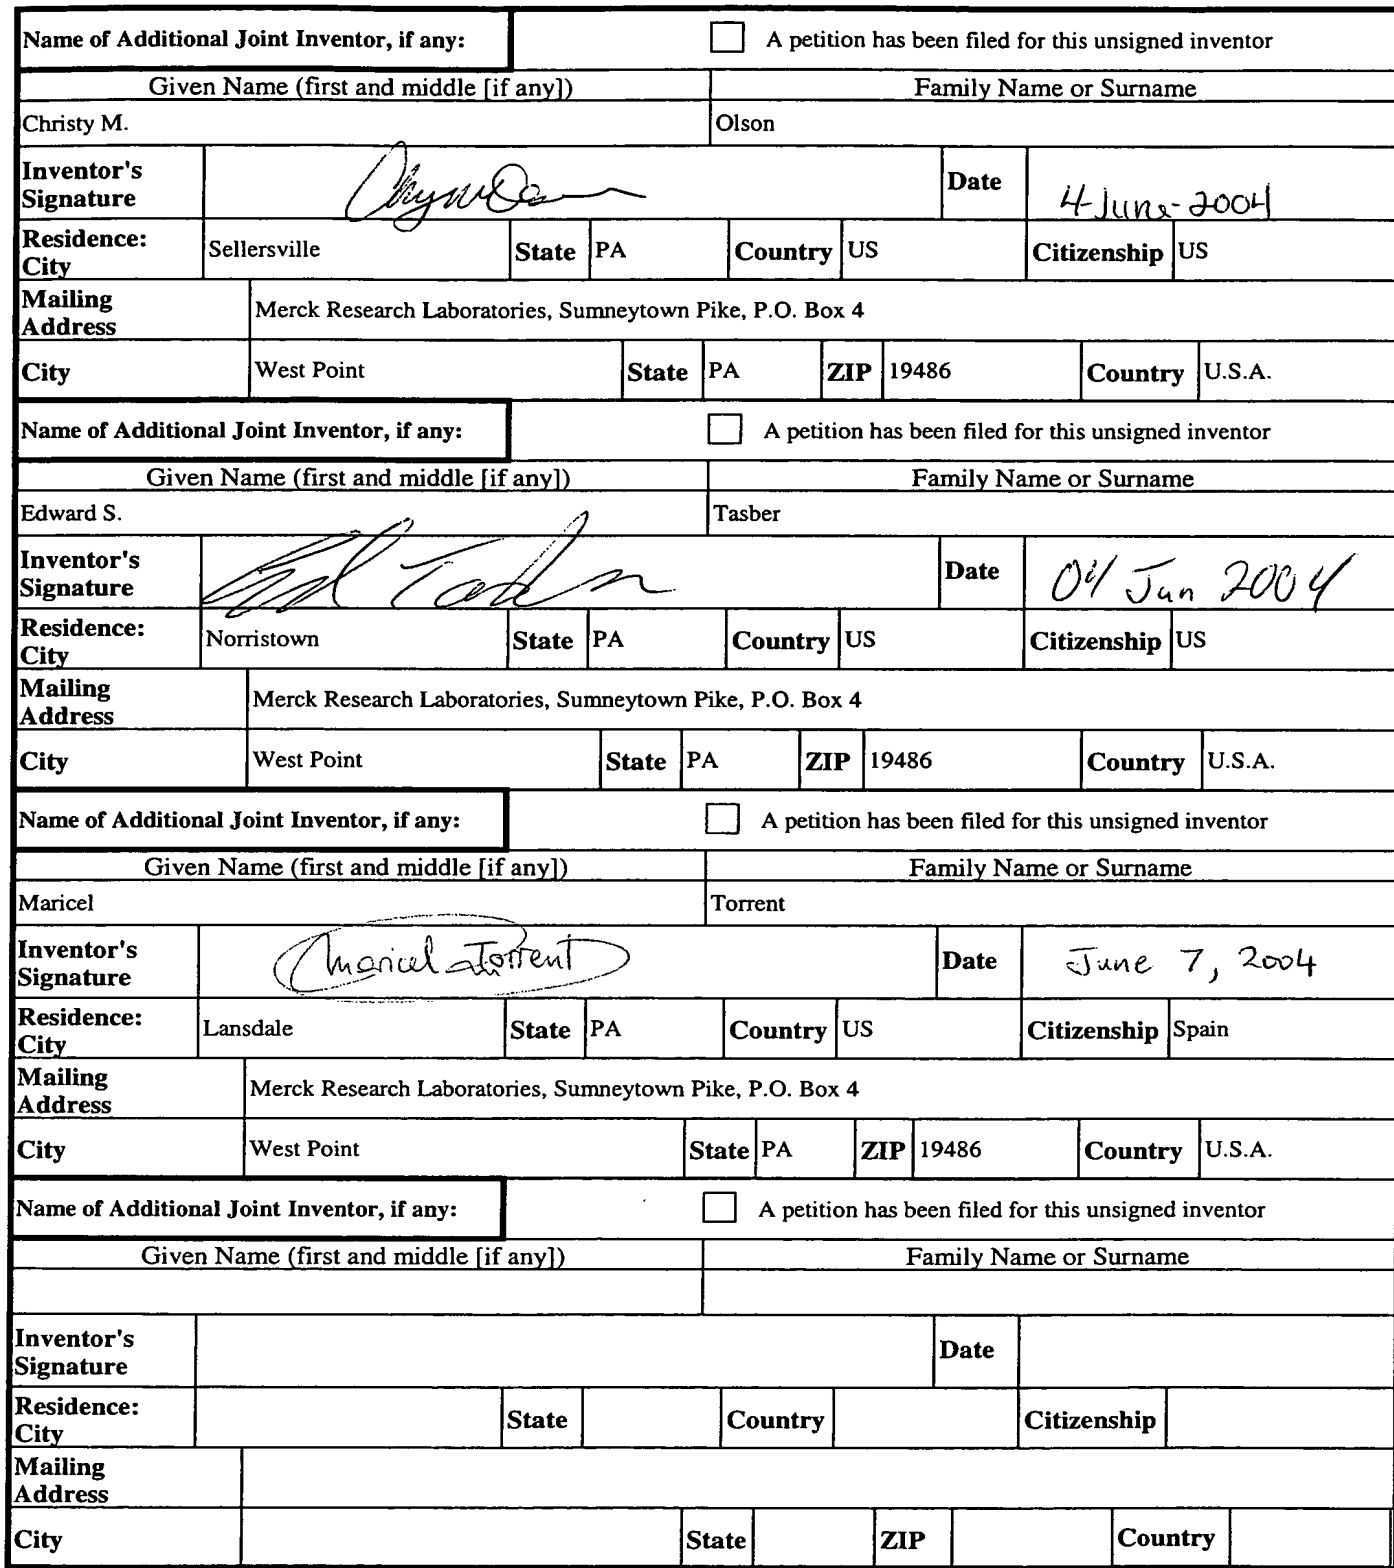 Name of Additional Joint Inventor, if any: A petition has been filed for this unsigned inventor
Given Name (first and middle [if any]) Family Name or Surname
Christy M. Olson
Inventor's Signature Date 4-June-2004
Residence: City Sellersville State PA Country US Citizenship US
Mailing Address Merck Research Laboratories, Sumneytown Pike, P.O. Box 4
City West Point State PA ZIP 19486 Country U.S.A.
Name of Additional Joint Inventor, if any: A petition has been filed for this unsigned inventor
Given Name (first and middle [if any]) Family Name or Surname
Edward S. Tasber
Inventor's Signature Date 04 Jun 2004
Residence: City Norristown State PA Country US Citizenship US
Mailing Address Merck Research Laboratories, Sumneytown Pike, P.O. Box 4
City West Point State PA ZIP 19486 Country U.S.A.
Name of Additional Joint Inventor, if any: A petition has been filed for this unsigned inventor
Given Name (first and middle [if any]) Family Name or Surname
Maricel Torrent
Inventor's Signature Maricel Torrent Date June 7, 2004
Residence: City Lansdale State PA Country US Citizenship Spain
Mailing Address Merck Research Laboratories, Sumneytown Pike, P.O. Box 4
City West Point State PA ZIP 19486 Country U.S.A.
Name of Additional Joint Inventor, if any: A petition has been filed for this unsigned inventor
Given Name (first and middle [if any]) Family Name or Surname
Inventor's Signature Date
Residence: City State Country Citizenship
Mailing Address
City State ZIP Country